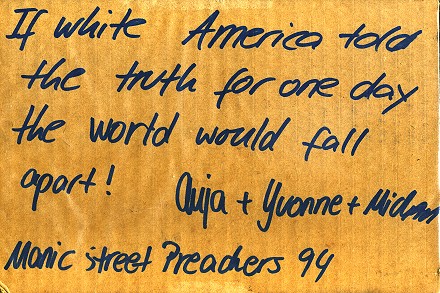 If white America told
the truth for one day
the world would fall
apart! Anja + Yvonne +
Manic Street Preachers 94